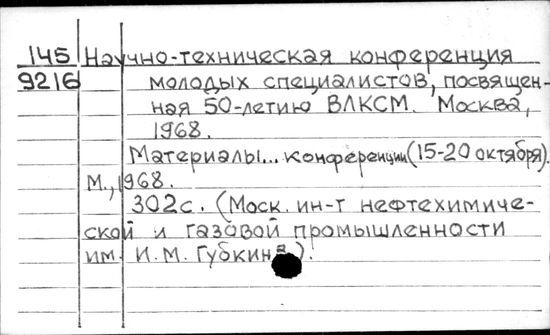 145 Научно-техническая конференция
9216 молодых специалистов, посвящен-
ная 50-летию ВЛКСМ. Москва,
1968.
Материалы... конференции (15-20 октября).
М., 1968.
302с. (Моск. ин-т нефтехимиче-
ской и газовой промышленности
им. И.М. Губкина).